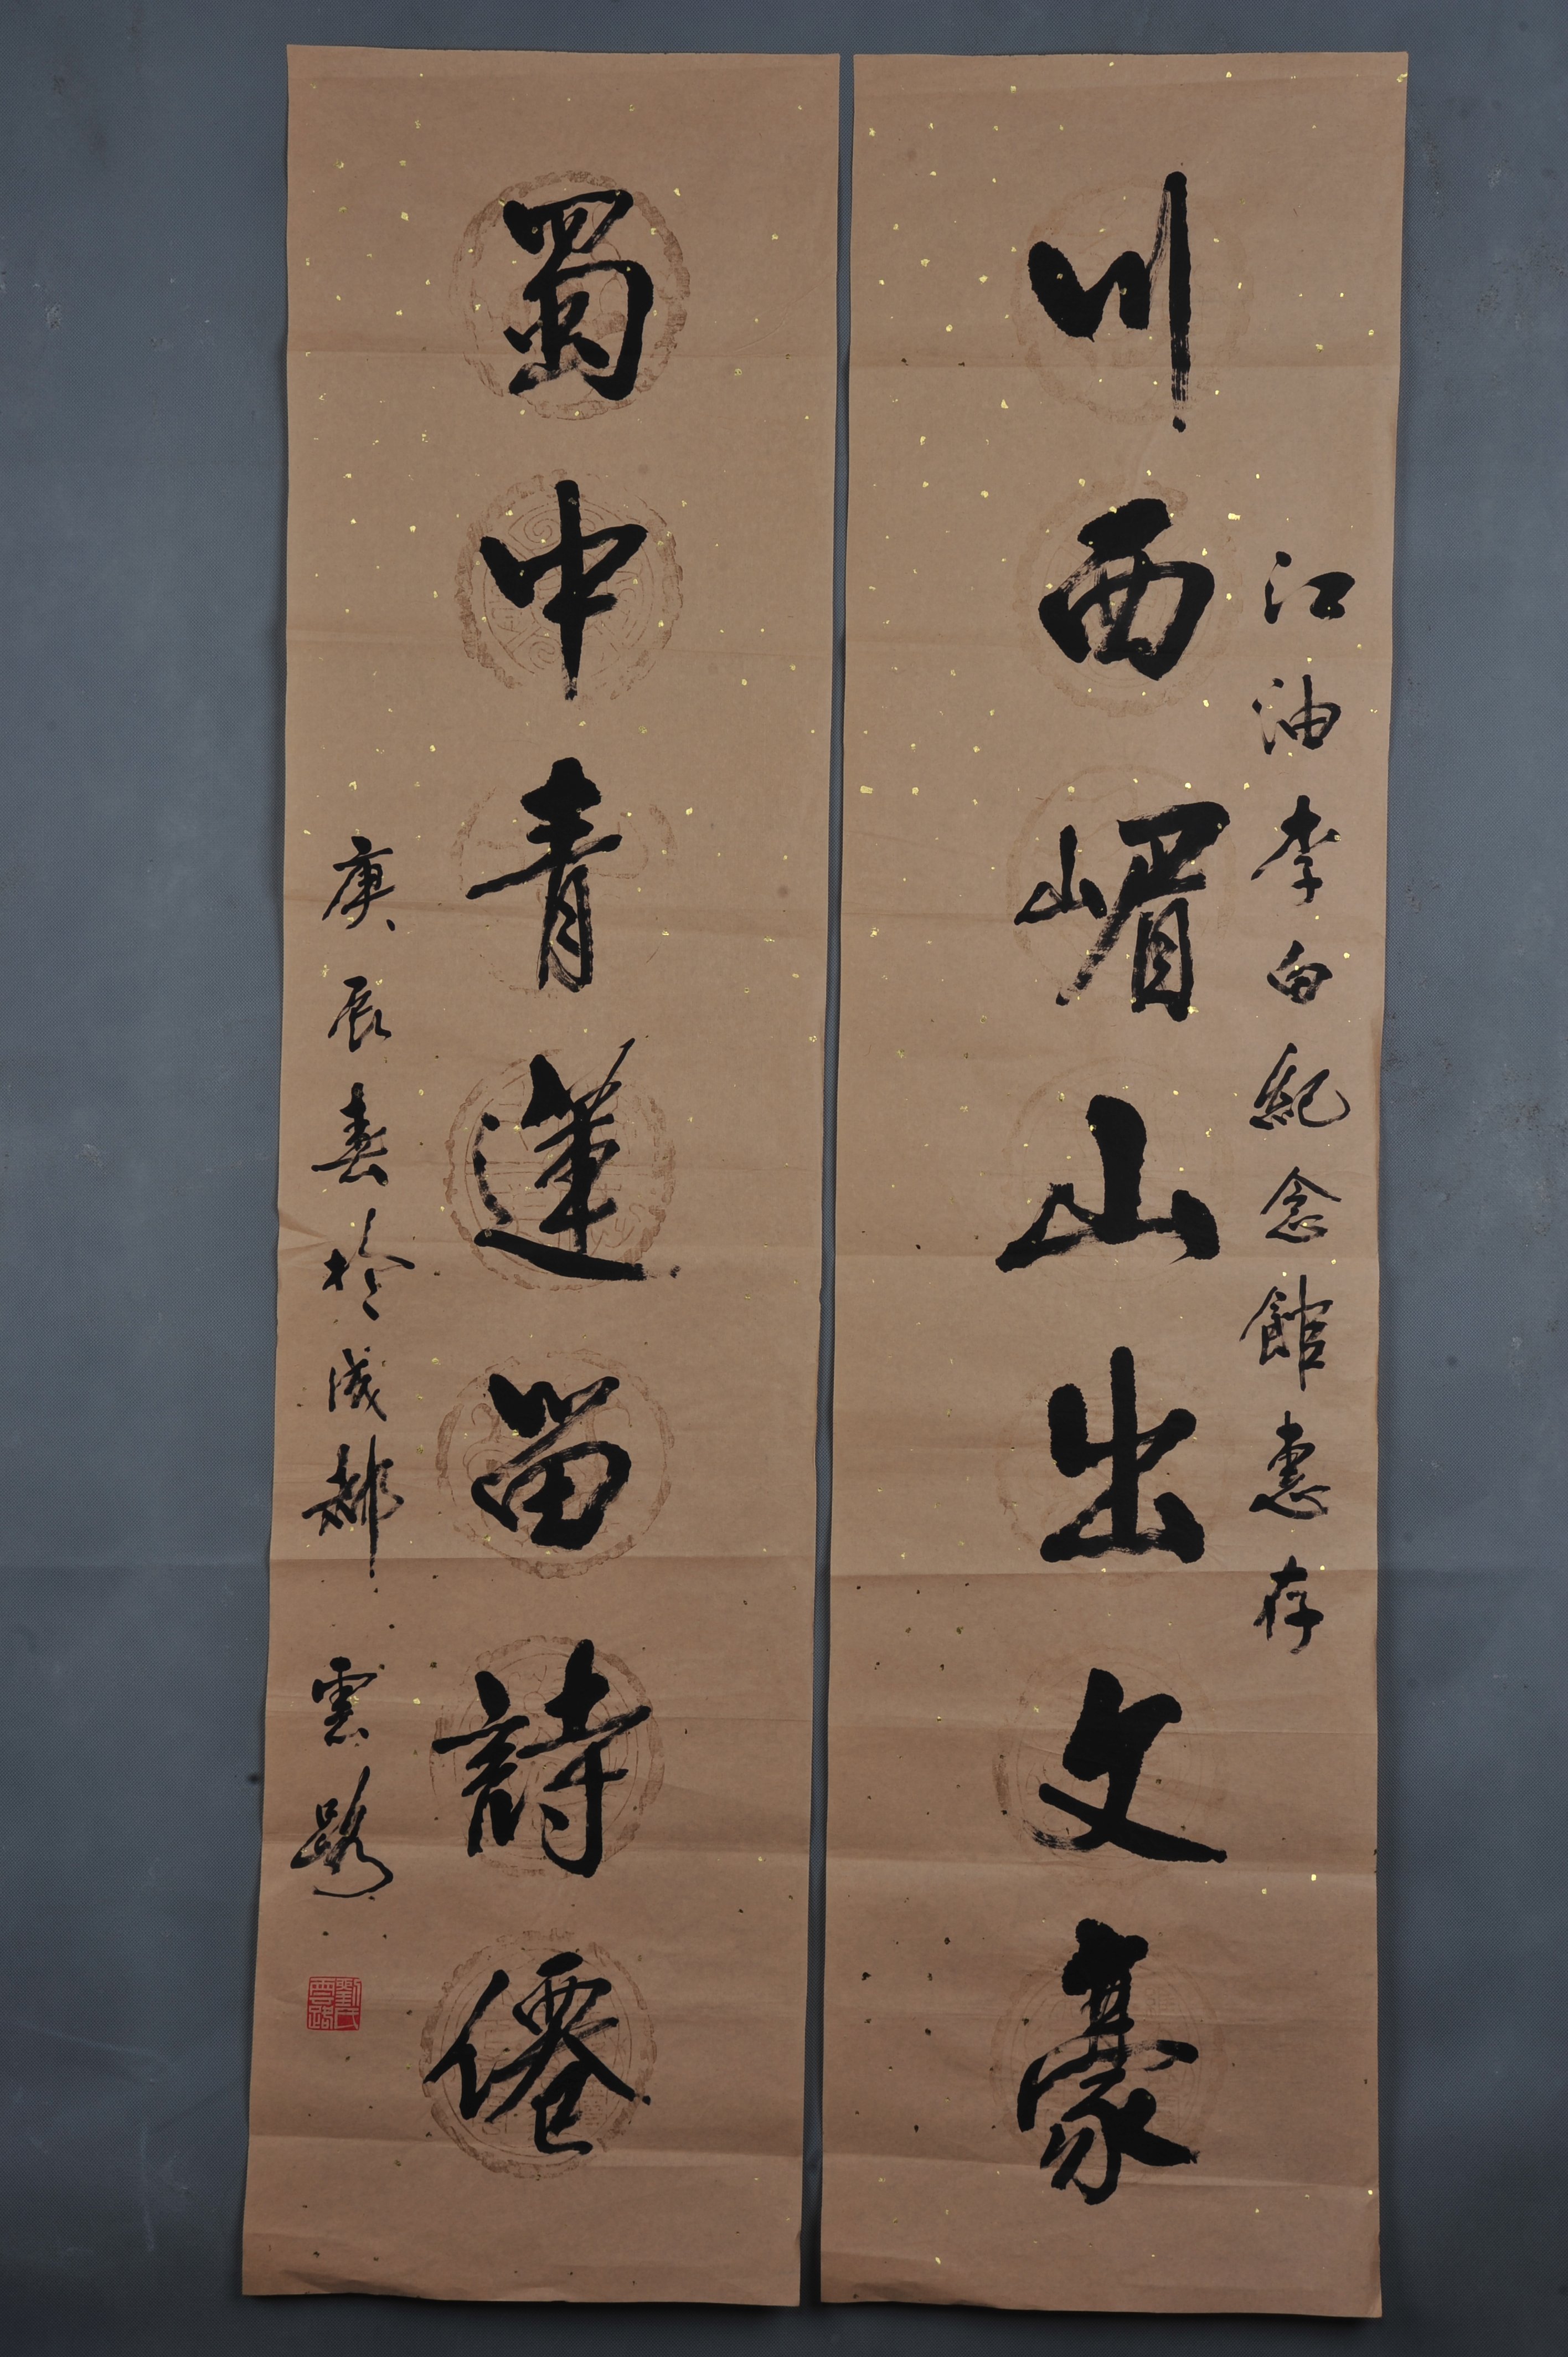 江油李白紀念館惠存
川西嵋山出文豪
蜀中青蓮留詩僊
庚辰春於成都 雲路
劉氏雲路